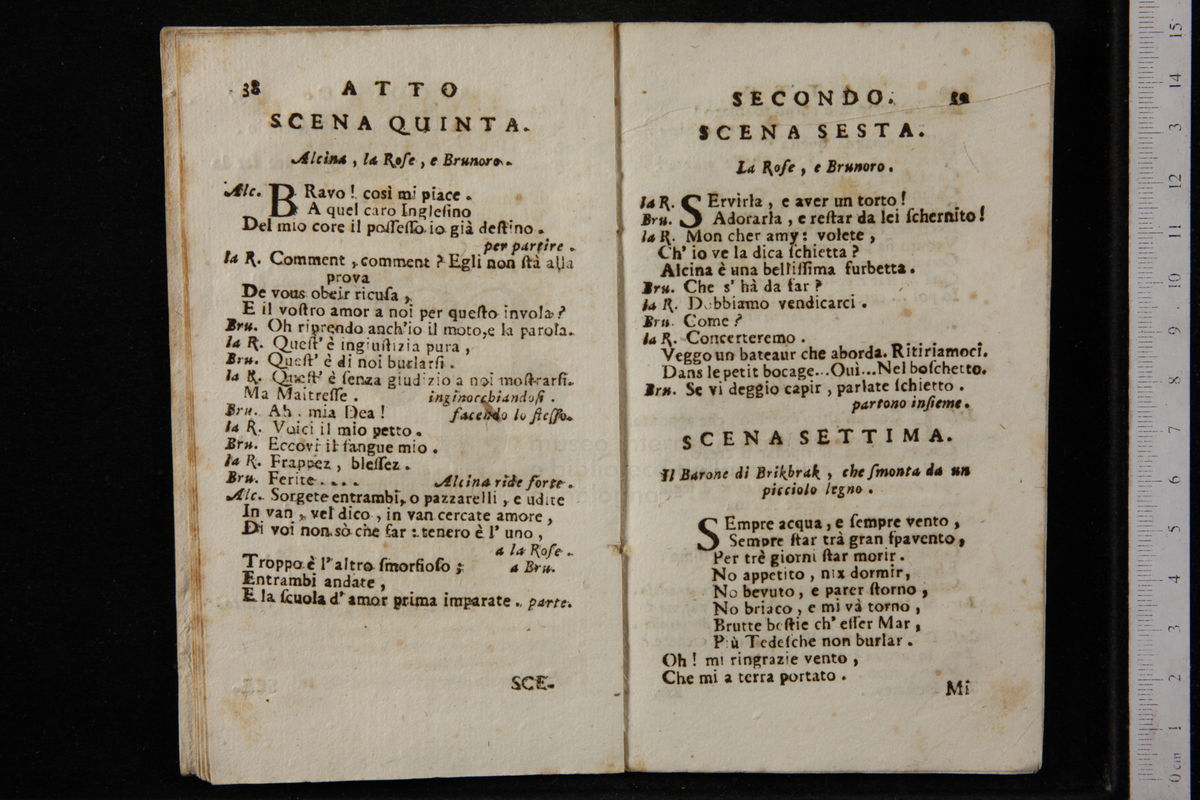 38
ATTO
SCENA QUINTA.
Alcina, la Roſe, e Brunoro.
Alc. BRavo! così mi piace.
A quel caro Ingleſino
Del mio core il poſſeſſo io già deſtino.
per partire.
la R. Comment, comment? Egli non ſtà alla
prova
De vous obeir ricuſa,
E il voſtro amor a noi per queſto invola?
Bru. Oh riprendo anch'io il moto, e la parola.
la R. Queſt' è ingiuſtizia pura,
Bru. Queſt' è di noi burlarſi.
la R. Queſt' è ſenza giudizio a noi moſtrarſi.
Ma Maitreſſe. inginocchiandoſi.
Bru. Ah. mia Dea! facendo lo ſteſſo.
la R. Voici il mio petto.
Bru. Eccovi il ſangue mio.
la R. Frappez, bleſſez.
Bru. Ferite.... Alcina ride forte.
Alc. Sorgete entrambi, o pazzarelli, e udite
In van, vel dico, in van cercate amore,
Di voi non sò che far: tenero è l' uno,
a la Roſe.
Troppo è l'altro ſmorfioſo; a Bru.
Entrambi andate,
E la ſcuola d' amor prima imparate. parte.
SCE-
SECONDO.
SCENA SESTA.
La Roſe, e Brunoro.
la R. SErvirla, e aver un torto!
Bru. Adorarla, e reſtar da lei ſchernito!
la R. Mon cher amy: volete,
Ch' io ve la dica ſchietta?
Alcina è una belliſſima furbetta.
Bru. Che s' hà da far?
la R. Dobbiamo vendicarci.
Bru. Come?
la R. Concerteremo.
Veggo un bateaur che aborda. Ritiriamoci.
Dans le petit bocage...Oui...Nel boſchetto.
Bru. Se vi deggio capir, parlate ſchietto.
partono inſieme.
SCENA SETTIMA.
Il Barone di Brikbrak, che ſmonta da un
picciolo legno.
SEmpre acqua, e ſempre vento,
Sempre ſtar trà gran ſpavento,
Per trè giorni ſtar morir.
No appetito, nix dormir,
No bevuto, e parer ſtorno,
No briaco, e mi và torno,
Brutte beſtie ch' eſſer Mar,
Più Tedeſche non burlar.
Oh! mi ringrazie vento,
Che mi a terra portato.
Mi